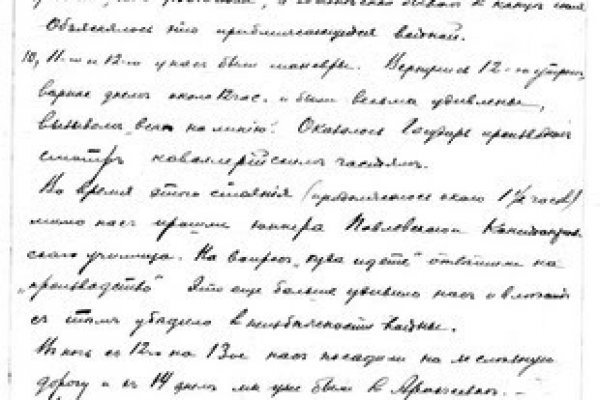 Объяснялось это приближающейся войной.
10, 11-го и 12-го у нас были маневры. Вернулись 12-го утром,
вернее днем около 12 час. и были весьма удивлены,
вызовом "всех на линию". Оказалось Государь производил
смотр кавалерийским частям.
Во время этого стояния (продолжалось около 1½ часов)
мимо нас прошли юнкера Павловского
училища. На вопрос "куда идете" ответили на
"производство" Это еще больше удивило нас и
с тем убедило в неизбежности войны.
В ночь с 12го на 13ое нас посадили на железную
дорогу и 14 днем мы уже были в